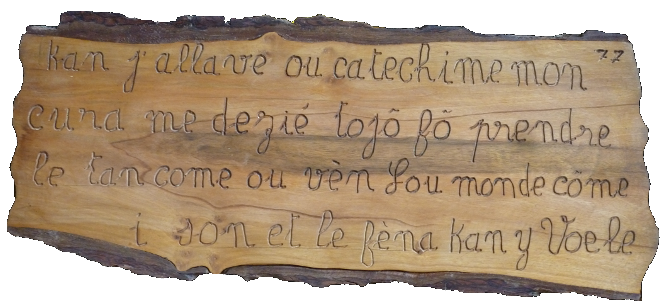 Kan j'allave ou catechime mon 77
cura me dezié tojô fô prendre
le tan come ou vèn Lou monde côme
i son et le fèna kan y Voele